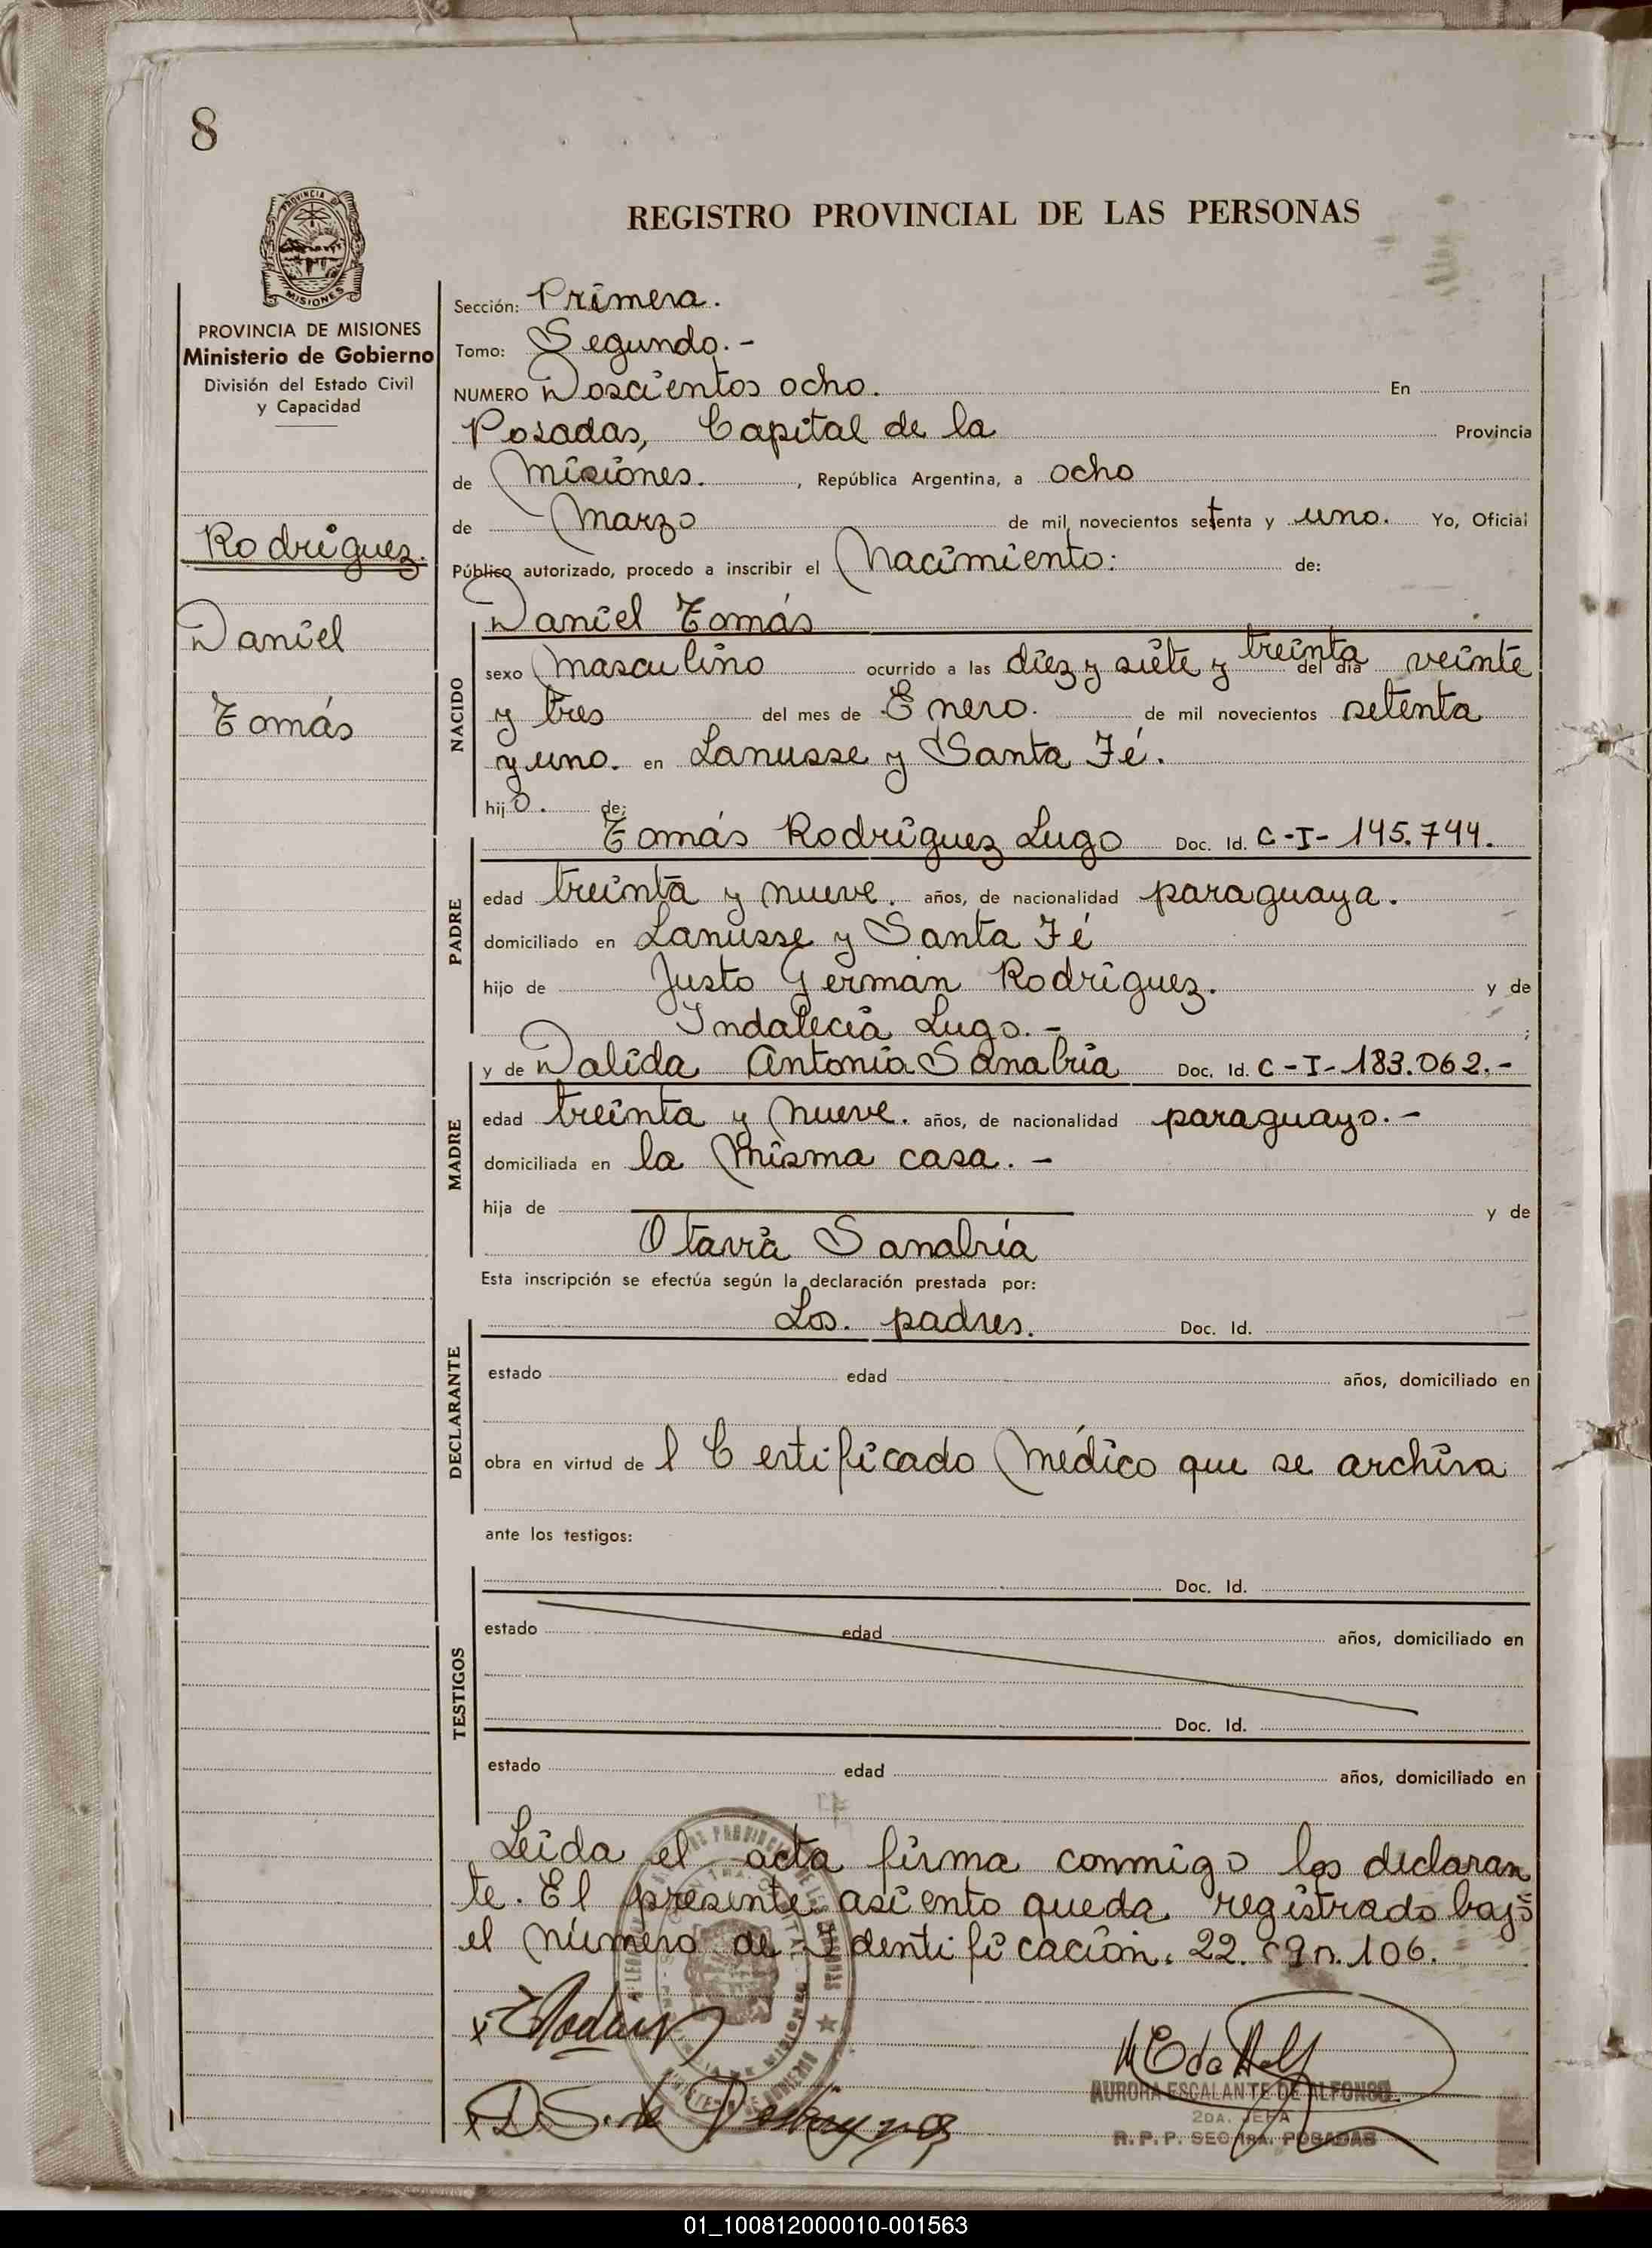 8
PROVINCIA DE
MISIONES
REGISTRO PROVINCIAL DE LAS PERSONAS
PROVINCIA DE MISIONES
Ministerio de Gobierno
División del Estado Civil
y Capacidad
Rodríguez.
Daniel
Tomás
Sección: Primera.
Tomo: Segundo.-
NUMERO Doscientos ocho. En
Posadas, Capital de la Provincia
de Misiones. , República Argentina, a ocho
de Marzo de mil novecientos setenta y uno. Yo, Oficial
Público autorizado, procedo a inscribir el Nacimiento: de:
NACIDO
Daniel Tomás
sexo Masculino ocurrido a las diez y siete y treinta del día veinte
y tres del mes de Enero. de mil novecientos setenta
y uno. en Lanusse y Santa Fé.
hijo. de:
PADRE
Tomás Rodríguez Lugo Doc. Id. C-I-145.744.
edad treinta y nueve. años, de nacionalidad paraguaya.
domiciliado en Lanusse y Santa Fé
hijo de Justo Germán Rodríguez. y de
Indalecia Lugo.- ;
MADRE
y de Dalida Antonia Sanabria Doc. Id. C-I-183.062.-
edad treinta y nueve. años, de nacionalidad paraguayo.-
domiciliada en la misma casa.-
hija de y de
Otavia Sanabria
Esta inscripción se efectúa según la declaración prestada por:
DECLARANTE
Los. padres. Doc. Id.
estado edad años, domiciliado en
obra en virtud de l Certificado Médico que se archiva
ante los testigos:
TESTIGOS
Doc. Id.
estado edad años, domiciliado en
Doc. Id.
estado edad años, domiciliado en
Leída el acta firma conmigo los declaran
te. El presente asiento queda registrado bajo
el número de Identificación. 22. 106.
AURORA ESCALANTE DE ALFONSO
2DA. JEFA
R.P.P. SEC 1RA. POSADAS
01_100812000010-001563